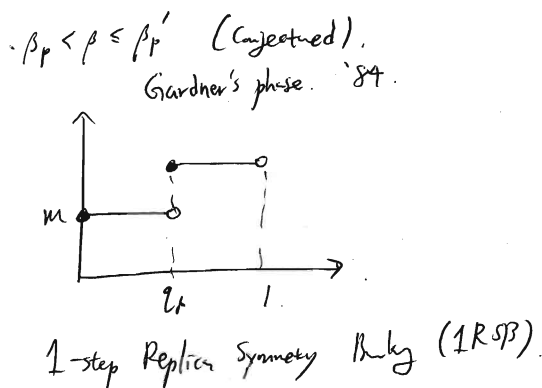 · βp < β ≤ βp' (Conjectured).
Gardner's phase. '84.
m
1.
1-step Replica Symmetry (1RSB).